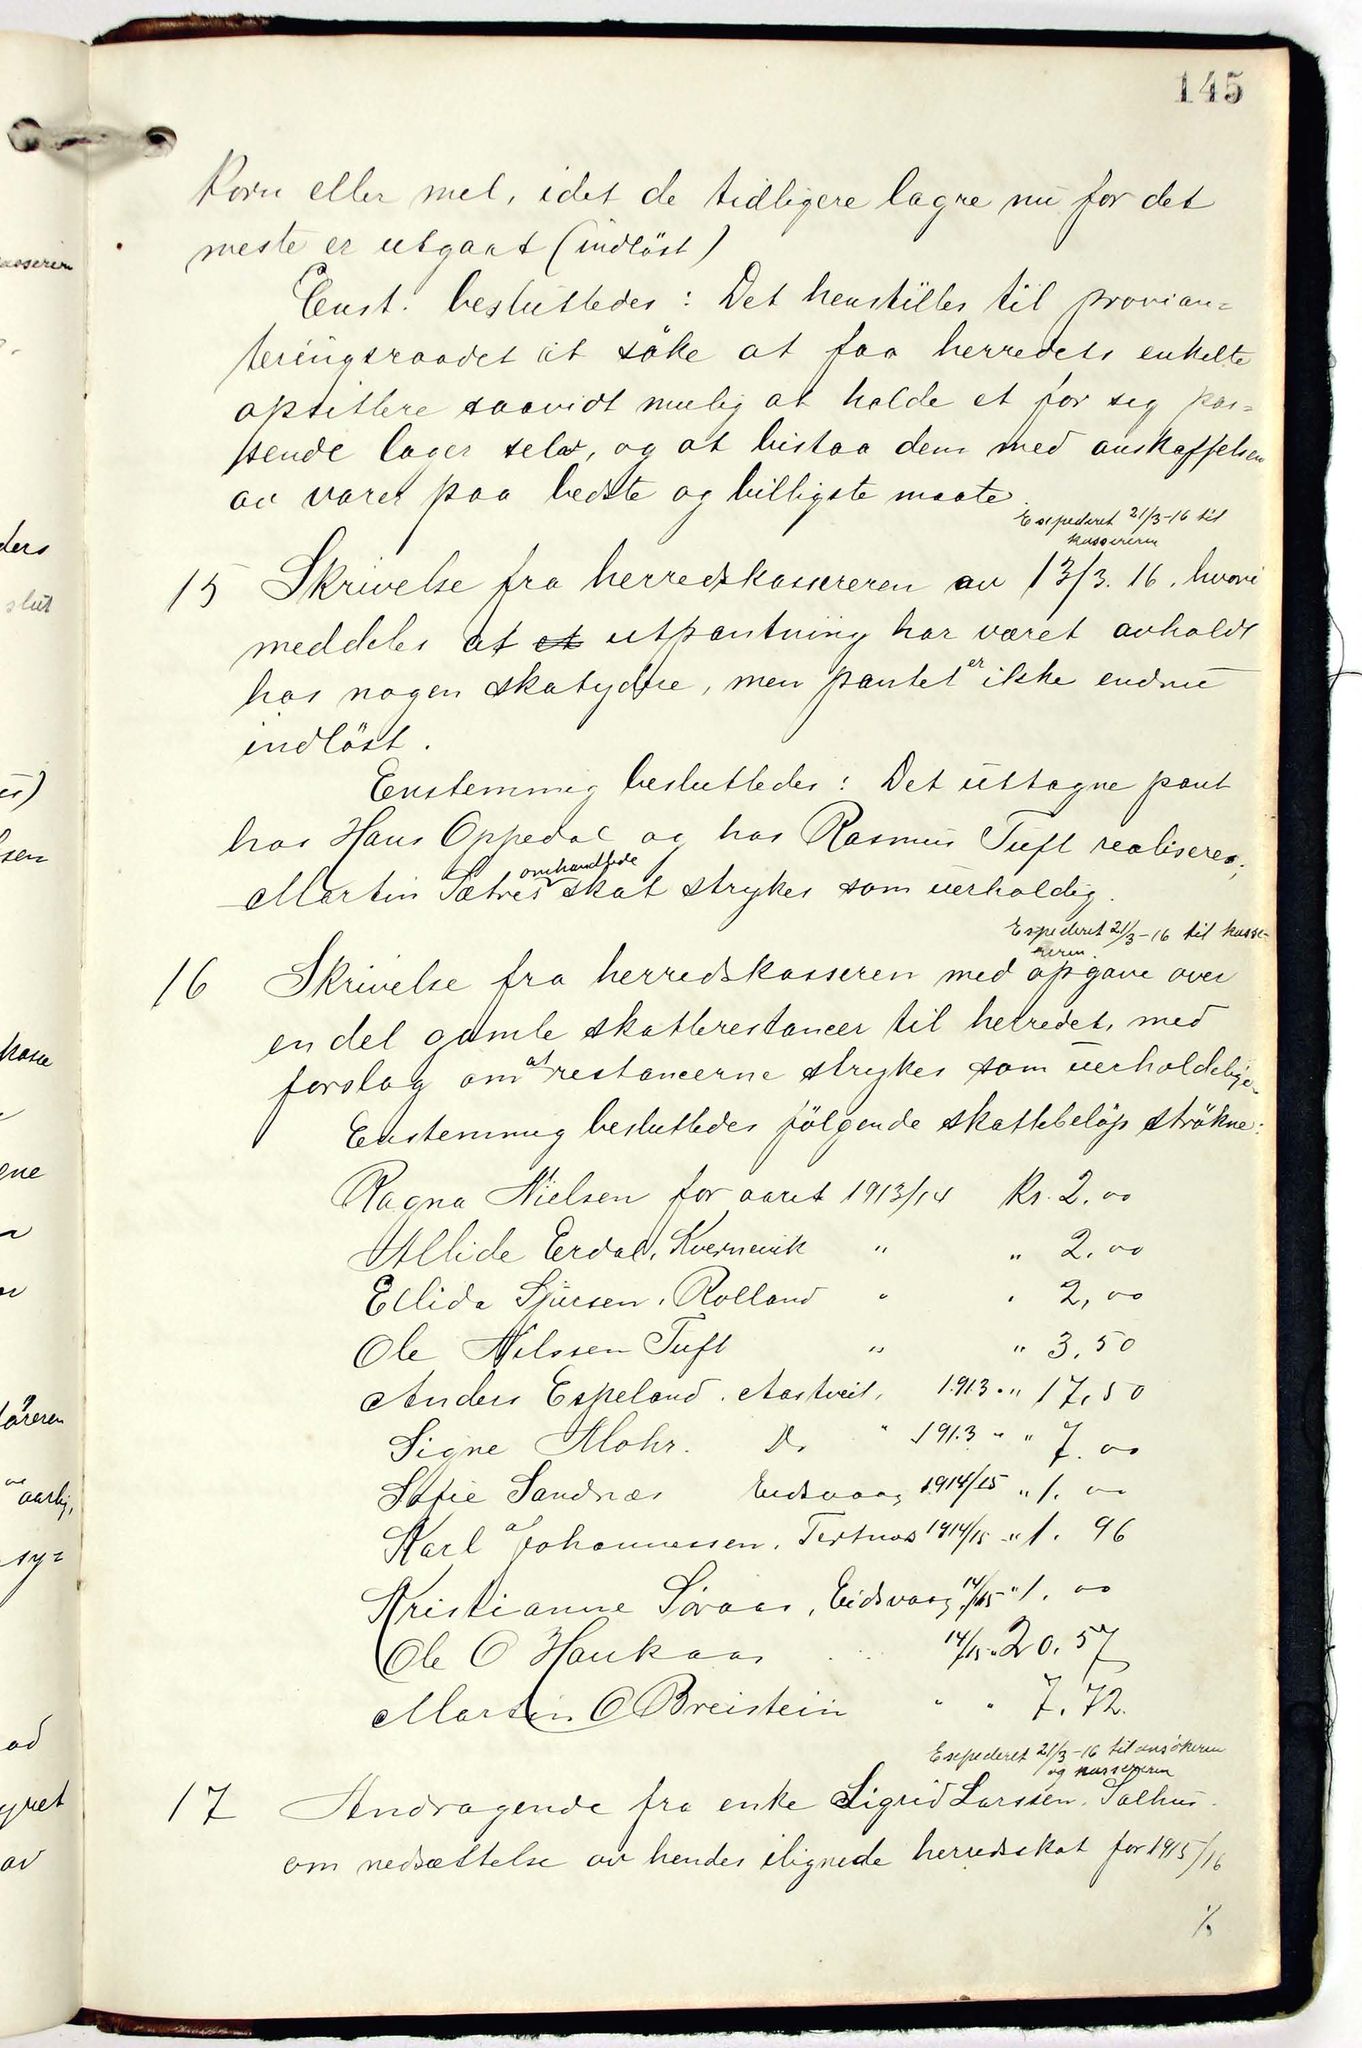 145
Korn eller mel, idet de tidligere lagre nu for det
meste er utgaat (indlöst)
Enst. besluttedes: Det henstilles til provian=
teringsraadet at söke at faa herredets enkelte
opsittere saavidt mulig at holde et for seg pas=
sende lager selv, og at bistaa dem med anskaffelsen
av varer paa bedste og billigste maate.
Expederet 21/3-16 til
kassereren
15 Skrivelse fra herredskassereren av 13/3. 16. hvori
meddeles at et utpantning har været avholdt
hos nogen skatydere, men pantet er ikke endnu
indlöst.
Enstemmig besluttedes: Det uttagne pant
hos Hans Oppedal og hos Rasmus Tuft realiseres;
Martin Sætres omhandlede skat strykes som uerholdig.
Expederet 21/3-16 til kasse-
reren.
16 Skrivelse fra herredskasseren med opgave over
en del gamle skatterestancer til herredet, med
forslag om at restancerne strykes som uerholdelige
Enstemmig besluttedes fölgende skattebelöp strökne:
Ragna Nielsen for aaret 1913/14 Kr. 2.00
Allide Erdal, Kvernevik " " 2.00
Ellida Sjursen, Rolland " " 2,00
Ole Nilssen Tuft " " 3.50
Anders Espeland. Aastveit, 1913 " " 17,50
Signe Mohr. Do " 1913 " " 7.00
Sofie Sandnæs Eidsvaag 1914/15 " 1.00
Karl A Johannessen, Tertnæs 1914/15 " 1.96
Kristianne Söraas, Eidsvaag 14/15 " 1.00
Ole O Haukaas 14/15 " 20.57
Martin O Breistein " " 7.72.
Expederet 21/3-16 til ansökeren
og kassereren
17 Andragende fra enke Sigrid Larssen, Salhus.
om nedsættelse av hendes ilignede herredsskat for 1915/16
%